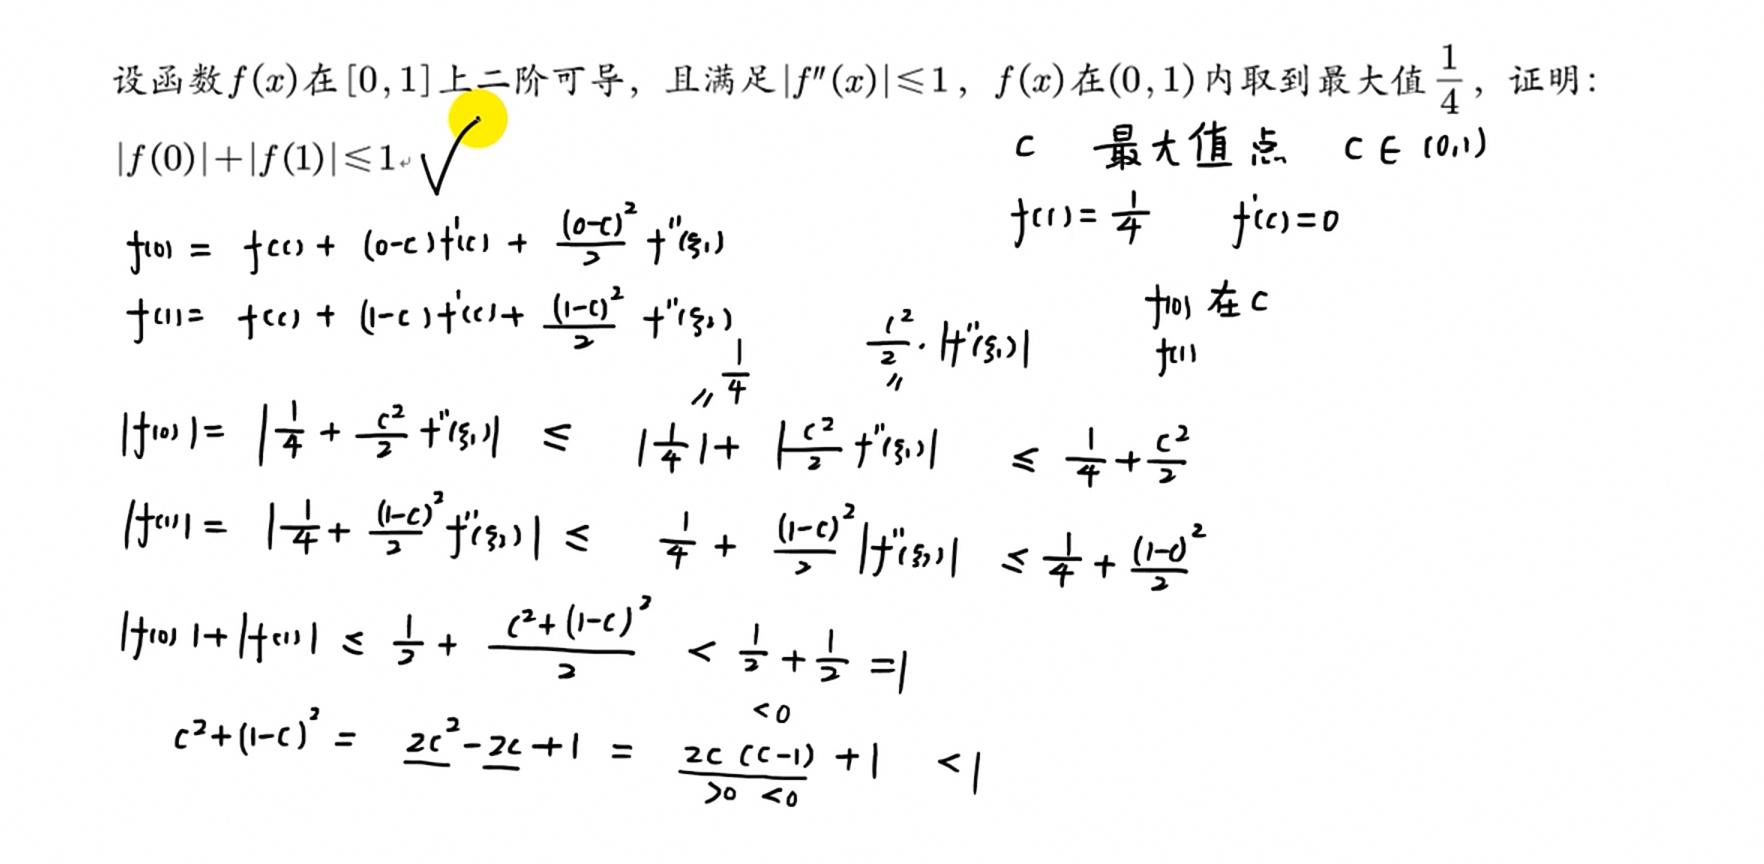 设函数f(x)在[0,1]上二阶可导，且满足|f″(x)|≤1，f(x)在(0,1)内取到最大值1/4，证明：
|f(0)|+|f(1)|≤1 ✓
c 最大值点 c∈(0,1)
f(c)=1/4 f'(c)=0
f(0) = f(c) + (0-c)f'(c) + (0-c)²/2 f″(ξ₁)
f(1) = f(c) + (1-c)f'(c) + (1-c)²/2 f″(ξ₂)
f(0) 在 c
f(1)
c²/2 · |f″(ξ₁)|
〃 1/4 〃
|f(0)| = |1/4 + c²/2 f″(ξ₁)| ≤ |1/4| + |c²/2 f″(ξ₁)| ≤ 1/4 + c²/2
|f(1)| = |1/4 + (1-c)²/2 f″(ξ₂)| ≤ 1/4 + (1-c)²/2 |f″(ξ₂)| ≤ 1/4 + (1-c)²/2
|f(0)| + |f(1)| ≤ 1/2 + (c²+(1-c)²)/2 < 1/2 + 1/2 = 1
<0
c²+(1-c)² = 2c²-2c+1 = 2c(c-1)+1 <1
>0 <0